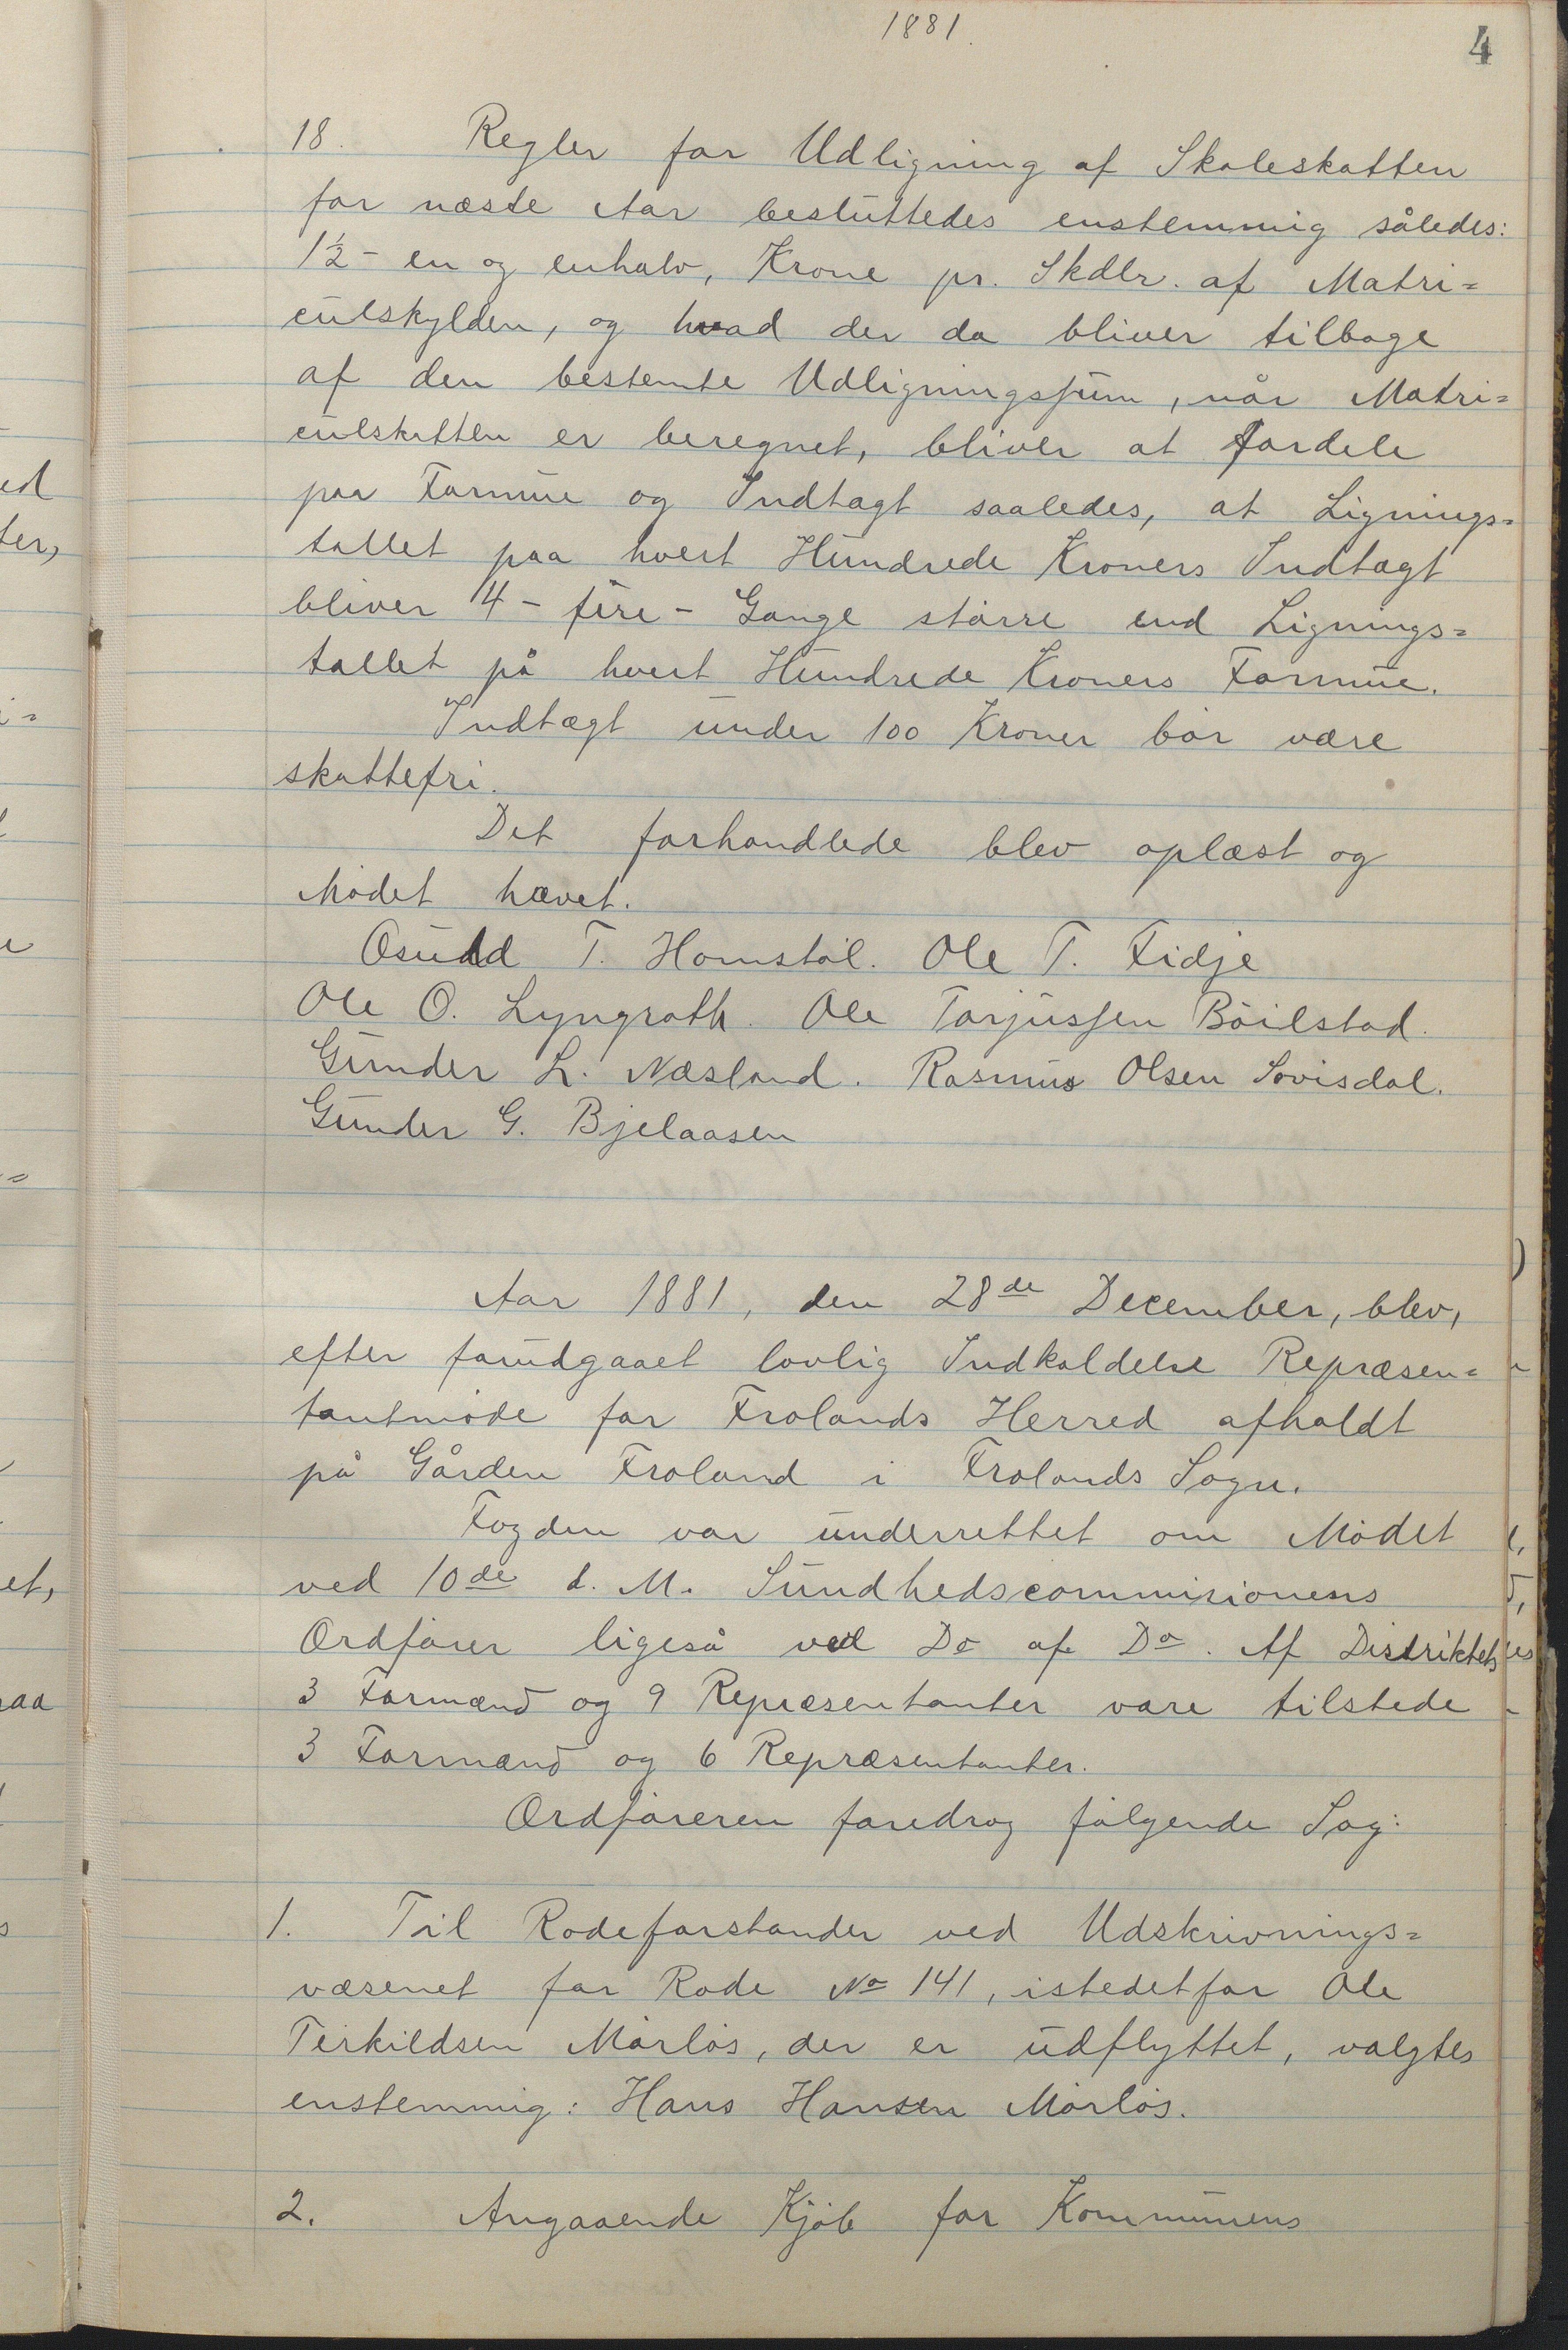 1881.
4
18. Regler for Udligning af Skoleskatten
for næste Aar besluttedes enstemmig således:
1½ - en og enhalv, Krone pr. Skdlr. af Matri=
culskylden, og hvad der da bliver tilbage
af den bestemte Udligningssum, når Matri=
culskatten er beregnet, bliver at fordele
paa Formue og Indtægt saaledes, at Lignings=
tallet paa hvert Hundrede Kroners Indtægt
bliver 4 - fire - Gange større end Lignings=
tallet på hvert Hundrede Kroners Formue.
Indtægt under 100 Kroner bør være
skattefri.
Det forhandlede blev oplæst og
Mødet hævet.
Osuld T. Homstøl. Ole T. Fidje
Ole O. Lyngroth. Ole Torjussen Bøilstad.
Gunder L. Næsland. Rasmus Olsen Sovisdal.
Gunder G. Bjelaasen
Aar 1881, den 28de December, blev,
efter forudgaaet lovlig Indkaldelse Repræsen=
tantmøde for Frolands Herred afholdt
på Gården Froland i Frolands Sogn.
Fogden var underrettet om Mødet
ved 10de d. M. Sundhedscommisionens
Ordfører ligeså ved Do af Do. Af Distriktets
3 Formænd og 9 Repræsentanter vare tilstede
3 Formænd og 6 Repræsentanter.
Ordføreren foredrog følgende Sag:
1. Til Rodeforstander ved Udskrivnings=
væsenet for Rode No 141, istedetfor Ole
Terkildsen Mørløs, der er udflyttet, valgtes
enstemmig: Hans Hansen Mørløs.
2. Angaaende Kjøb for Kommunens